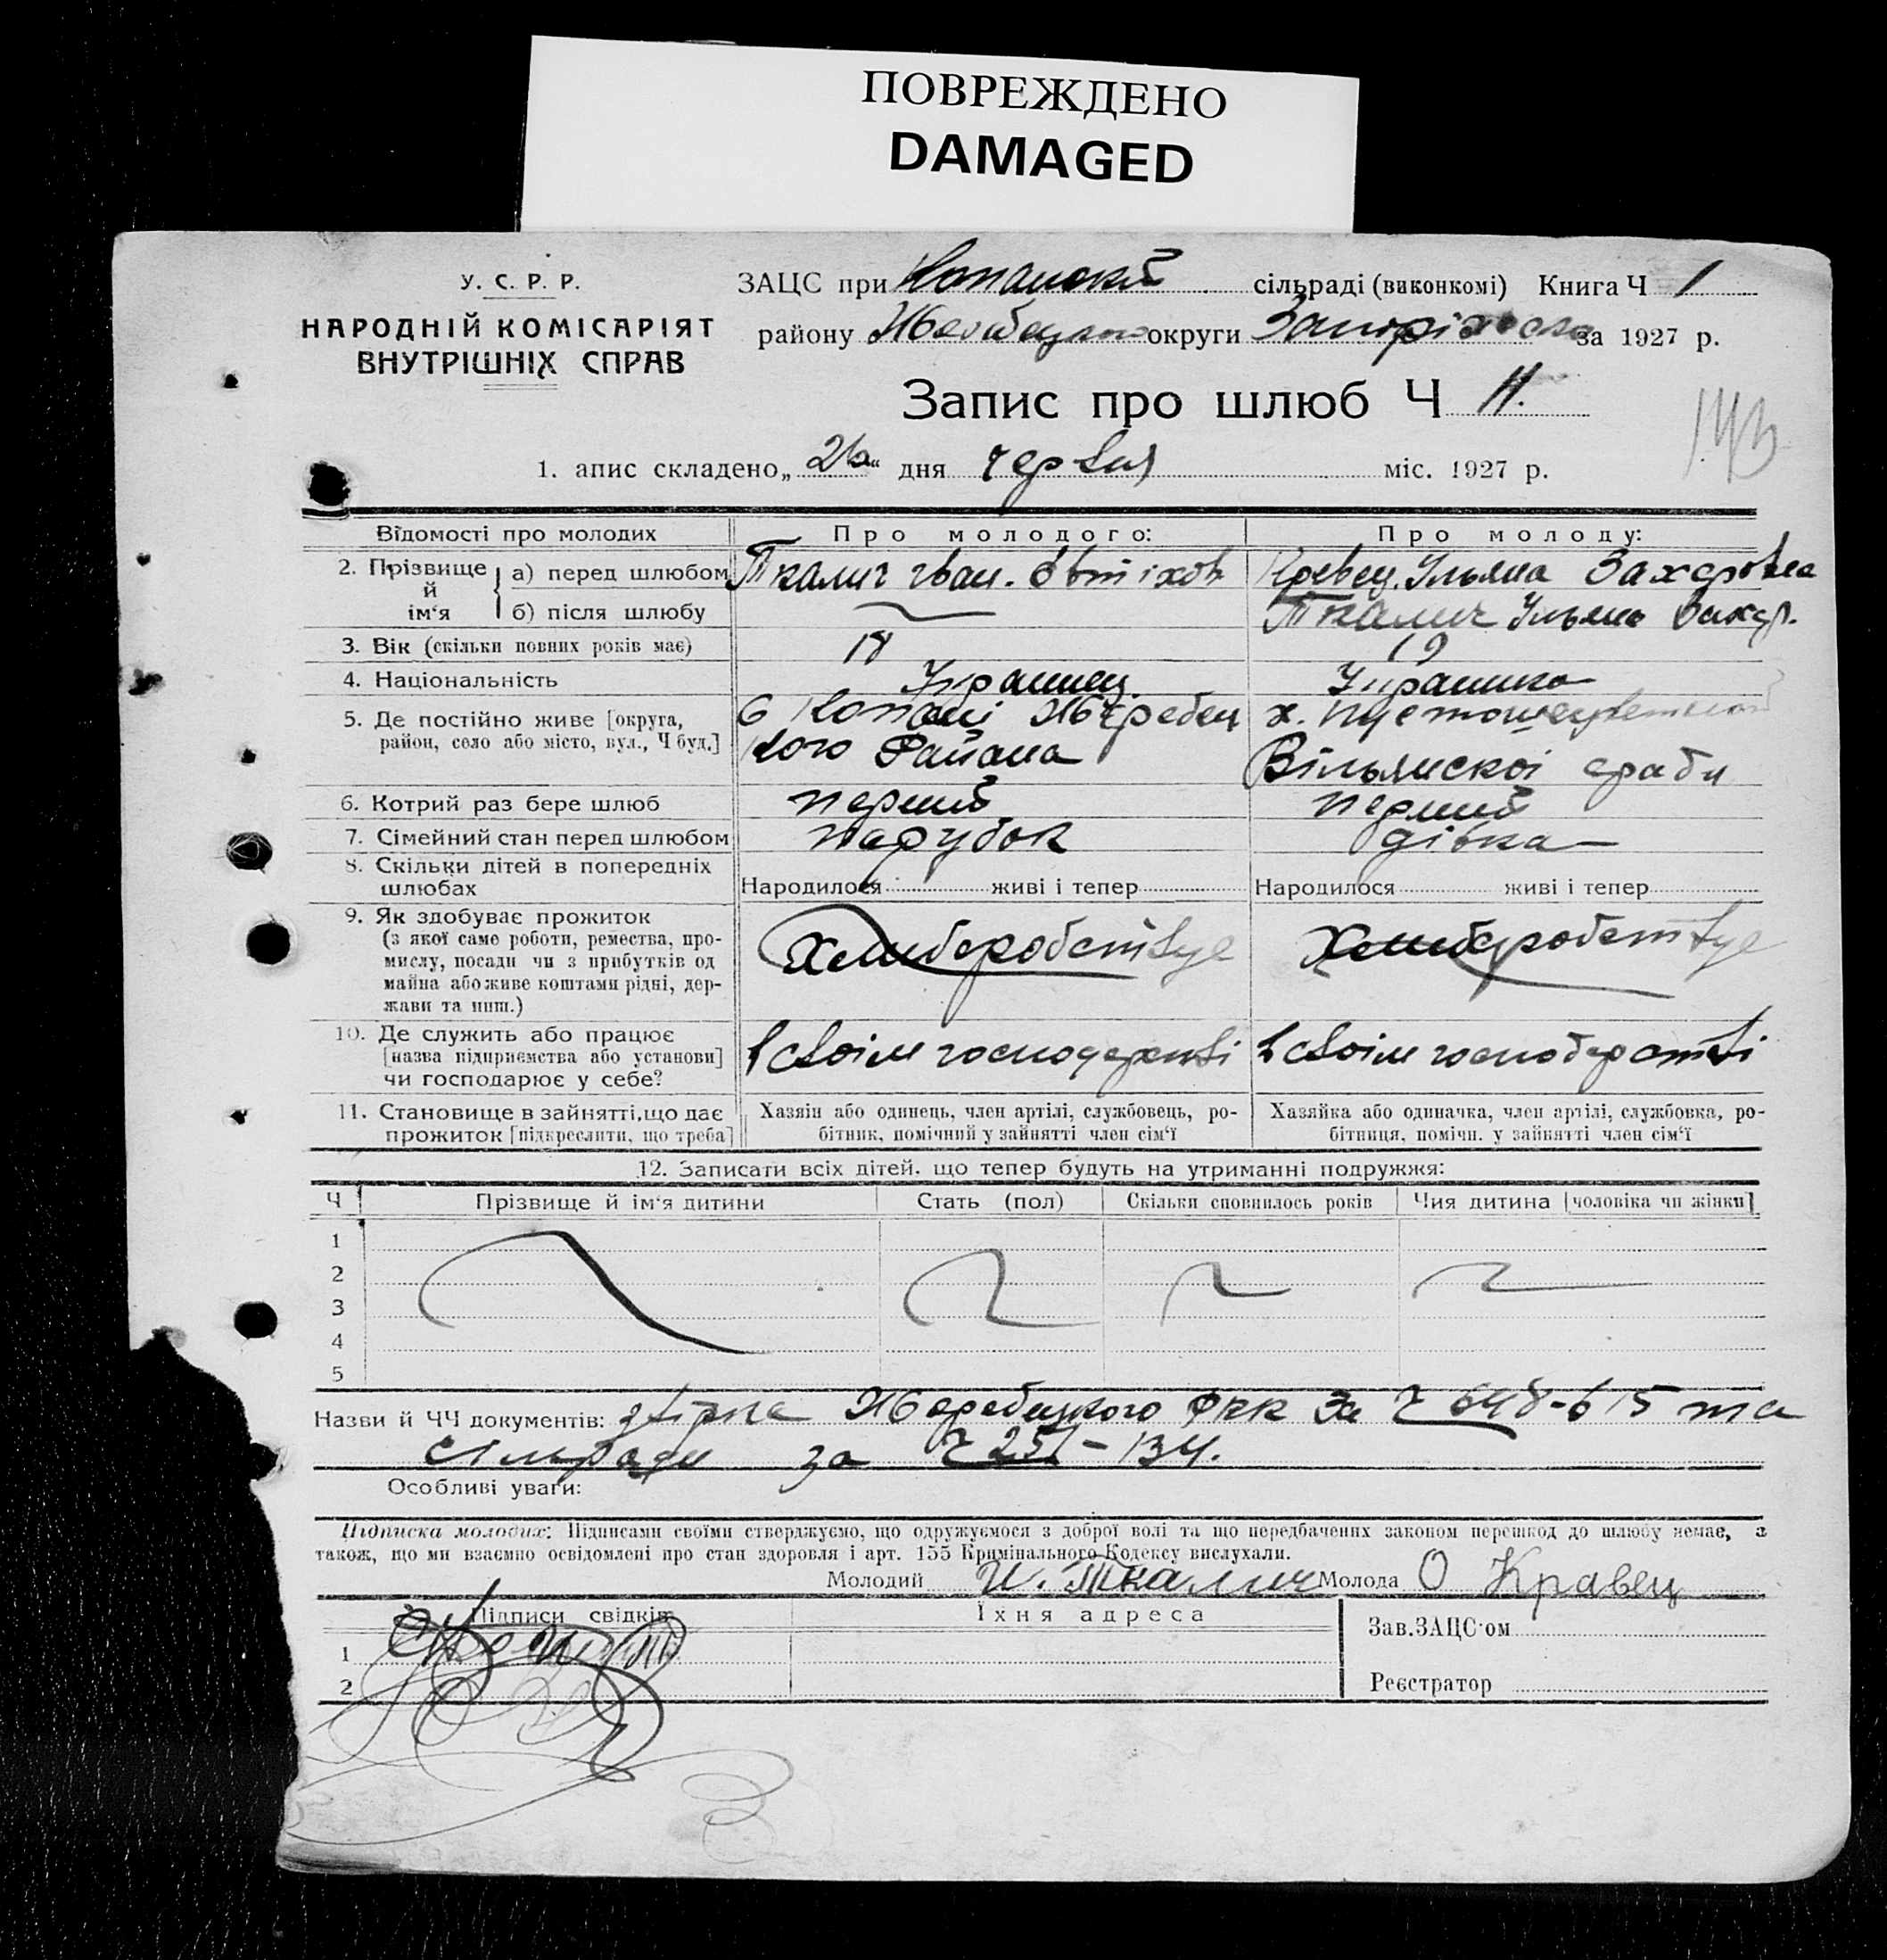 ПОВРЕЖДЕНО
DAMAGED
У. С. Р. Р.
НАРОДНІЙ КОМІСАРІЯТ
ВНУТРІШНІХ СПРАВ
ЗАЦС при Копанской сільраді (виконкомі) Книга Ч 1
району округи за 1927 р.
Запис про шлюб Ч 11.
143
1. апис складено „26“ дня червня міс. 1927 р.
Відомості про молодих
Про молодого:
Про молоду:
2. Прізвище й ім'я
а) перед шлюбом
Ткалич Іван. Овтіхов
Кревец. Ульяна Захаровна
б) після шлюбу
Ткалич Ульяна Захар.
3. Вік (скільки повних років має)
18
19
4. Національність
Українец
Українка
5. Де постійно живе [округа, район, село або місто, вул., Ч буд.]
С Копані Жеребец
кого Района
х.
Вільянскоі сради
6. Котрий раз бере шлюб
перший
перший
7. Сімейний стан перед шлюбом
парубок
дівка
8. Скільки дітей в попередніх шлюбах
Народилося живі і тепер
Народилося живі і тепер
9. Як здобуває прожиток
(з якої саме роботи, ремества, про-
мислу, посади чи з прибутків од
майна або живе коштами рідні, дер-
жави та инш.)
Хлиборобствує
Хлиборобствує
10. Де служить або працює
[назва підприємства або установи]
чи господарює у себе?
В своім господарстві
В своім господарстві
11. Становище в зайнятті, що дає
прожиток [підкреслити, що треба]
Хазяїн або одинець, член артілі, службовець, ро-
бітник, помічний у зайнятті член сім'ї
Хазяйка або одиначка, член артілі, службовка, ро-
бітниця, помічн. у зайнятті член сім'ї
12. Записати всіх дітей, що тепер будуть на утриманні подружжя:
Ч Прізвище й ім'я дитини Стать (пол) Скільки сповнилось років Чия дитина [чоловіка чи жінки]
1
2
3
4
5
Назви й ЧЧ документів: Жеребецкого за Ч 648-615 та
сільради за Ч 251-134.
Особливі уваги:
Підписка молодих: Підписами своїми стверджуємо, що одружуємося з доброї волі та що передбачених законом перешкод до шлюбу немає, а
також, що ми взаємно освідомлені про стан здоровля і арт. 155 Кримінального Кодексу вислухали.
Молодий И. Ткалич Молода О Кравец
Підписи свідків
Їхня адреса
Зав.ЗАЦС'ом
1
2
Реєстратор